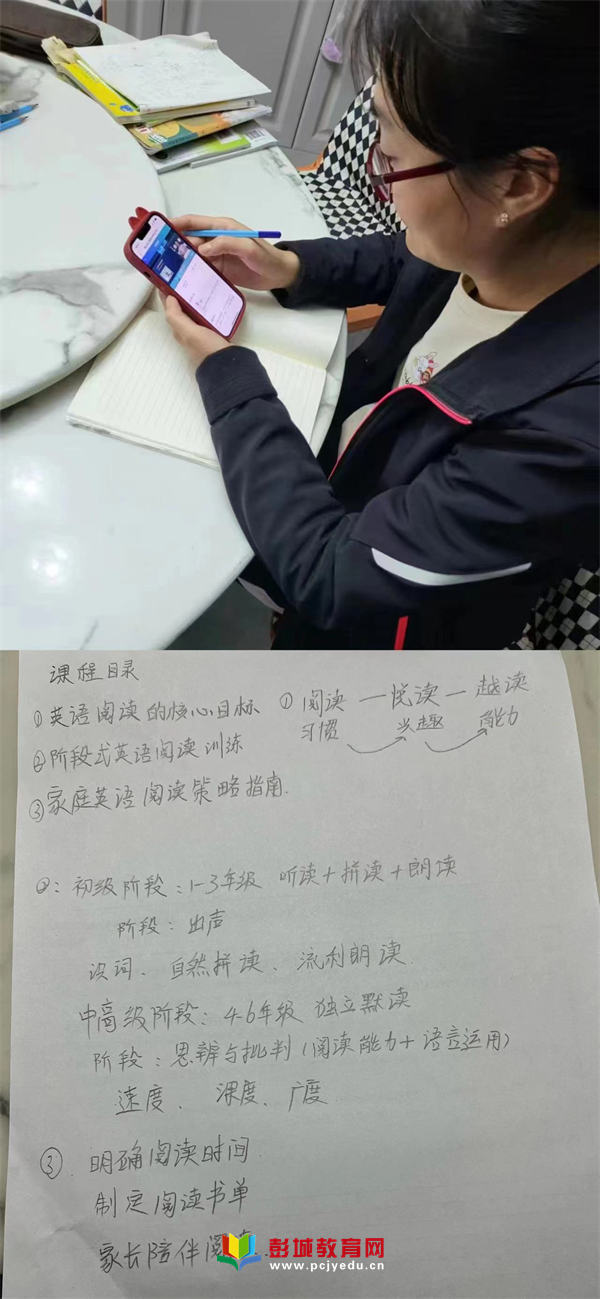 课程目录
①英语阅读的核心目标
②阶段式英语阅读训练
③家庭英语阅读策略指南.
① 阅读 — 悦读 — 越读
习惯 兴趣 能力
②: 初级阶段: 1-3年级 听读+拼读+朗读
阶段: 出声
识词、自然拼读、流利朗读.
中高级阶段: 4-6年级 独立默读
阶段: 思辨与批判(阅读能力+语言运用)
速度、深度、广度.
③. 明确阅读时间
制定阅读书单
家长陪伴阅读.
彭城教育网
www.pcjyedu.cn